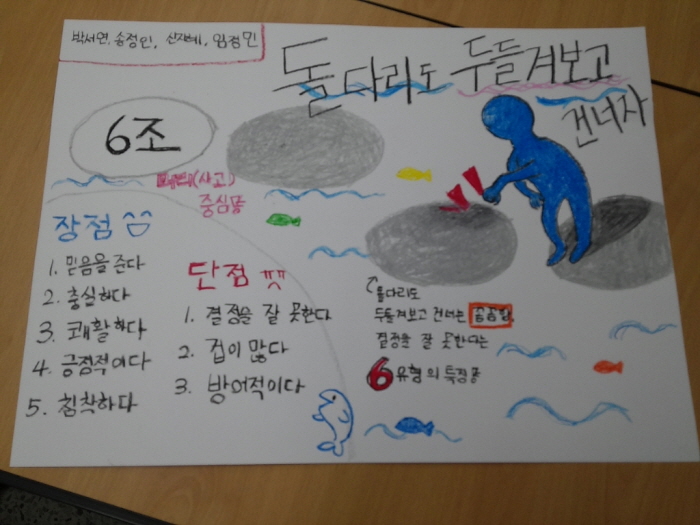 박서연, 송정인, 신지혜, 임정민
돌다리도 두들겨보고
건너자
6조
머리(사고)
중심형
장점 ^^
1. 믿음을 준다
2. 충실하다
3. 쾌활하다
4. 긍정적이다
5. 침착하다
단점 ㅠㅠ
1. 결정을 잘 못한다
2. 겁이 많다
3. 방어적이다
돌다리도
두들겨보고 건너는
결정을 잘 못한다는
6유형의 특징